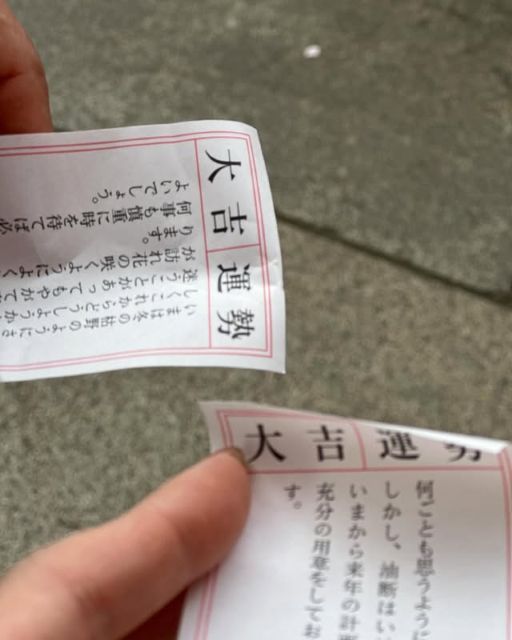 大吉運勢
いまは冬の枯野のようにさ
しくこれからどうしようか
迷うことがあってもやがて
が訪れ花の咲くようによく
ります。
何事も慎重に時を待てば必
よいでしょう。
大吉運勢
何ごとも思うように
しかし、油断はい
いまから来年の計
充分の用意をしてお
す。